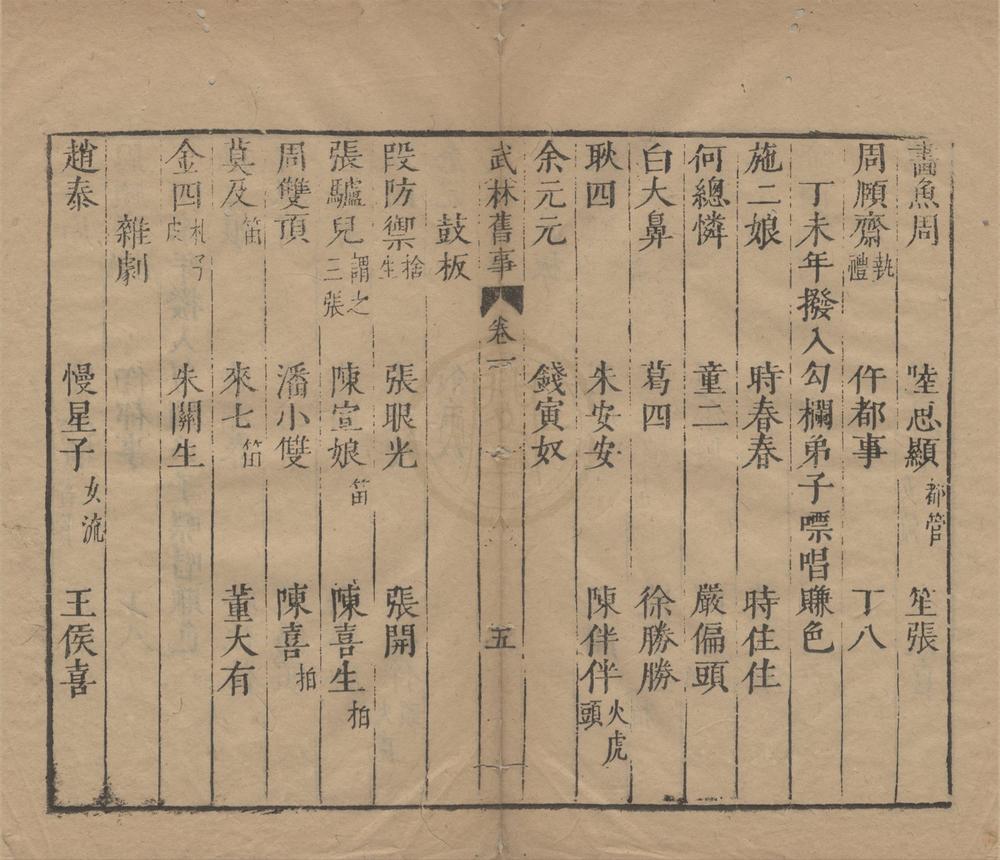 書魚周 陸恩顯 都管 笙張
周願齋 執禮 仵都事 丁八
丁未年撥入勾欄弟子嘌唱賺色
施二娘 時春春 時住住
何總憐 童二 嚴偏頭
白大鼻 葛四 徐勝勝
耿四 朱安安 陳伴伴 火虎頭
余元元 錢寅奴
武林舊事 卷一 五
鼓板
段防禦 拾生 張眼光 張開
張驢兒 謂之三張 陳宣娘 笛 陳喜生 拍
周雙頂 潘小雙 陳喜 拍
莫及 笛 來七 笛 董大有
金四 札子皮 朱關生
雜劇
趙泰 慢星子 女流 王侯喜